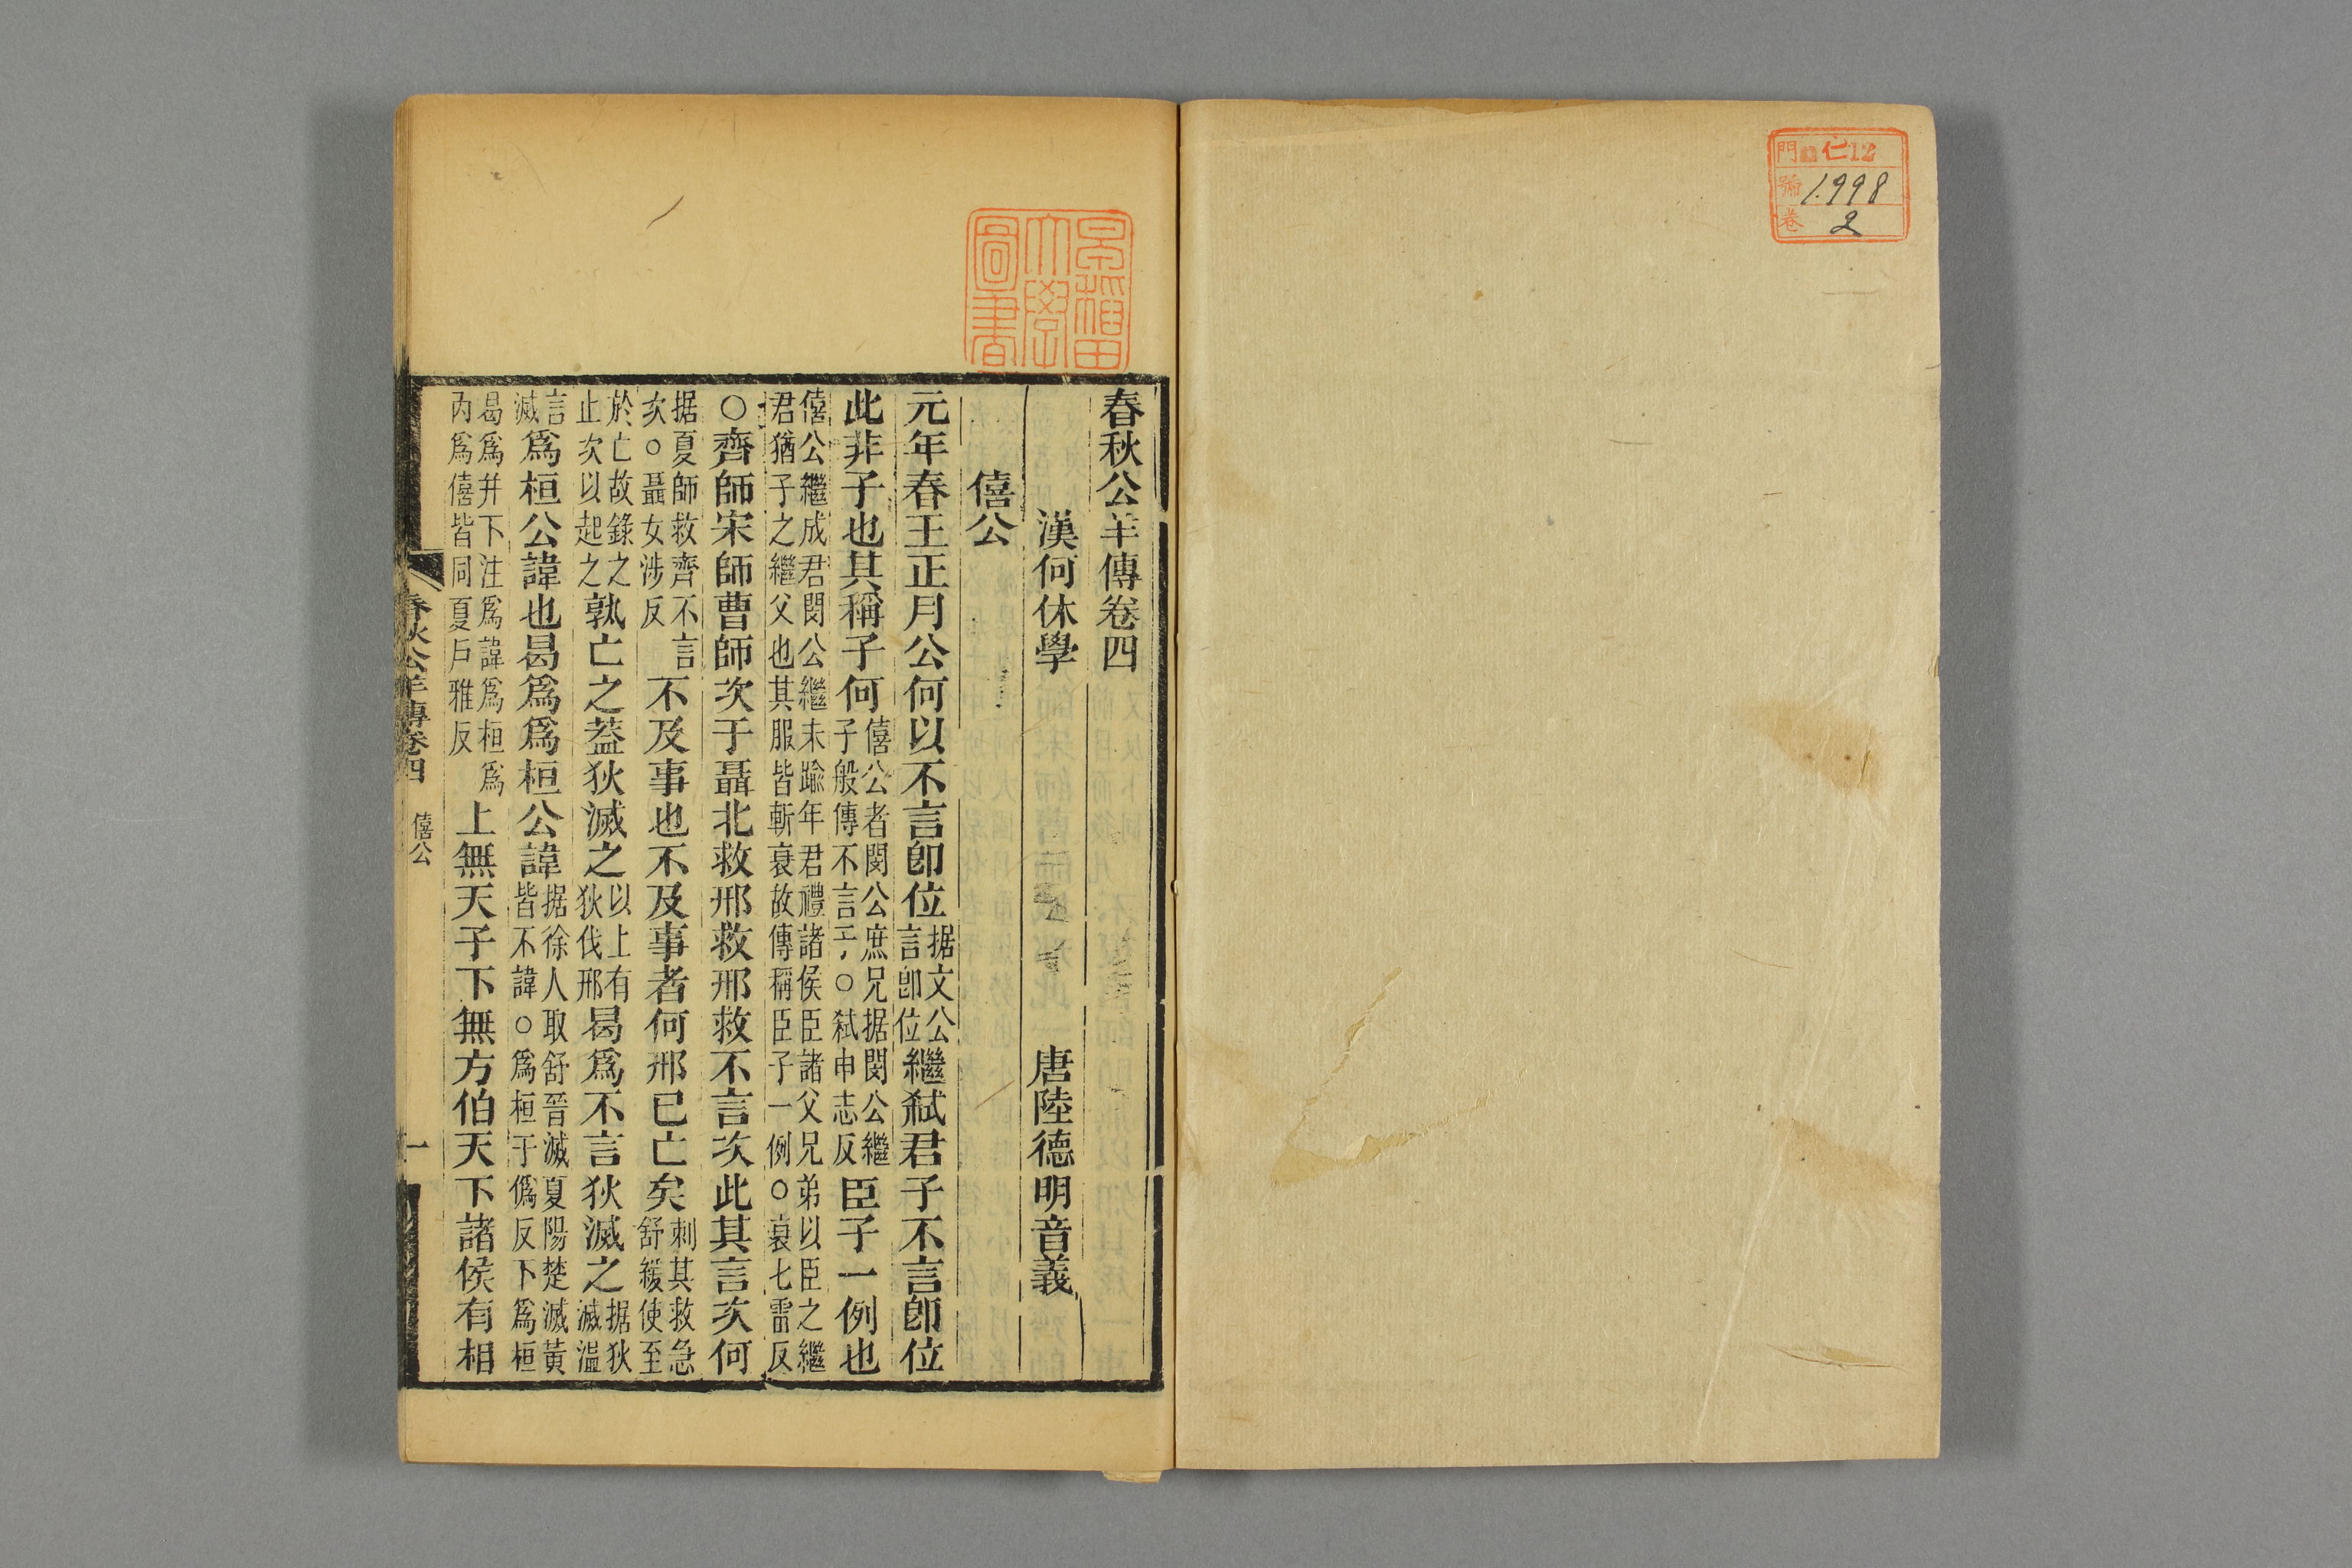 門 仁12
號 1998
卷 2
早稻田
大學
圖書
春秋公羊傳卷四
漢何休學 唐陸德明音義
僖公
元年春王正月公何以不言卽位据文公言卽位繼弑君子不言卽位
此非子也其稱子何僖公者閔公庶兄据閔公繼子般傳不言子○弑申志反臣子一例也
僖公繼成君閔公繼未踰年君禮諸侯臣諸父兄弟以臣之繼君猶子之繼父也其服皆斬衰故傳稱臣子一例○衰七雷反
○齊師宋師曹師次于聶北救邢救邢救不言次此其言次何
据夏師救齊不言次○聶女涉反不及事也不及事者何邢已亡矣刺其救急舒緩使至
於亡故錄之止次以起之孰亡之蓋狄滅之以上有狄伐邢曷爲不言狄滅之据狄滅溫
言滅爲桓公諱也曷爲爲桓公諱据徐人取舒晉滅夏陽楚滅黃皆不諱○爲桓于僞反下爲桓
曷爲幷下注爲諱爲桓爲內爲僖皆同夏戶雅反上無天子下無方伯天下諸侯有相
春秋公羊傳卷四 僖公 一